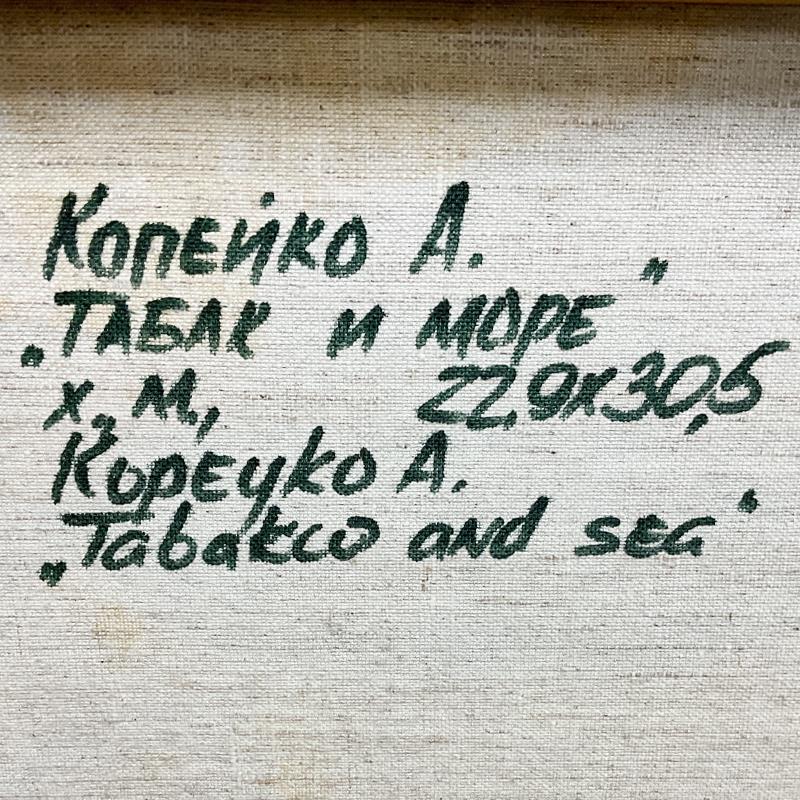 Копейко А.
„ТАБАК и МОРЕ"
х, м., 22,9х30,5
Kopeyko A.
„Tabakco and sea"